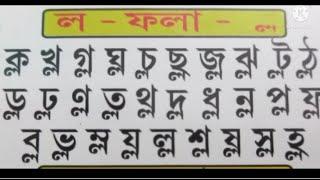 ল - ফলা - ্ল
ক্ল খ্ল গ্ল ঘ্ল চ্ল ছ্ল জ্ল ঝ্ল ট্ল ঠ্ল
ড্ল ঢ্ল ণ্ল ত্ল থ্ল দ্ল ধ্ল ন্ল প্ল ফ্ল
ব্ল ভ্ল ম্ল য্ল ল্ল শ্ল ষ্ল স্ল হ্ল